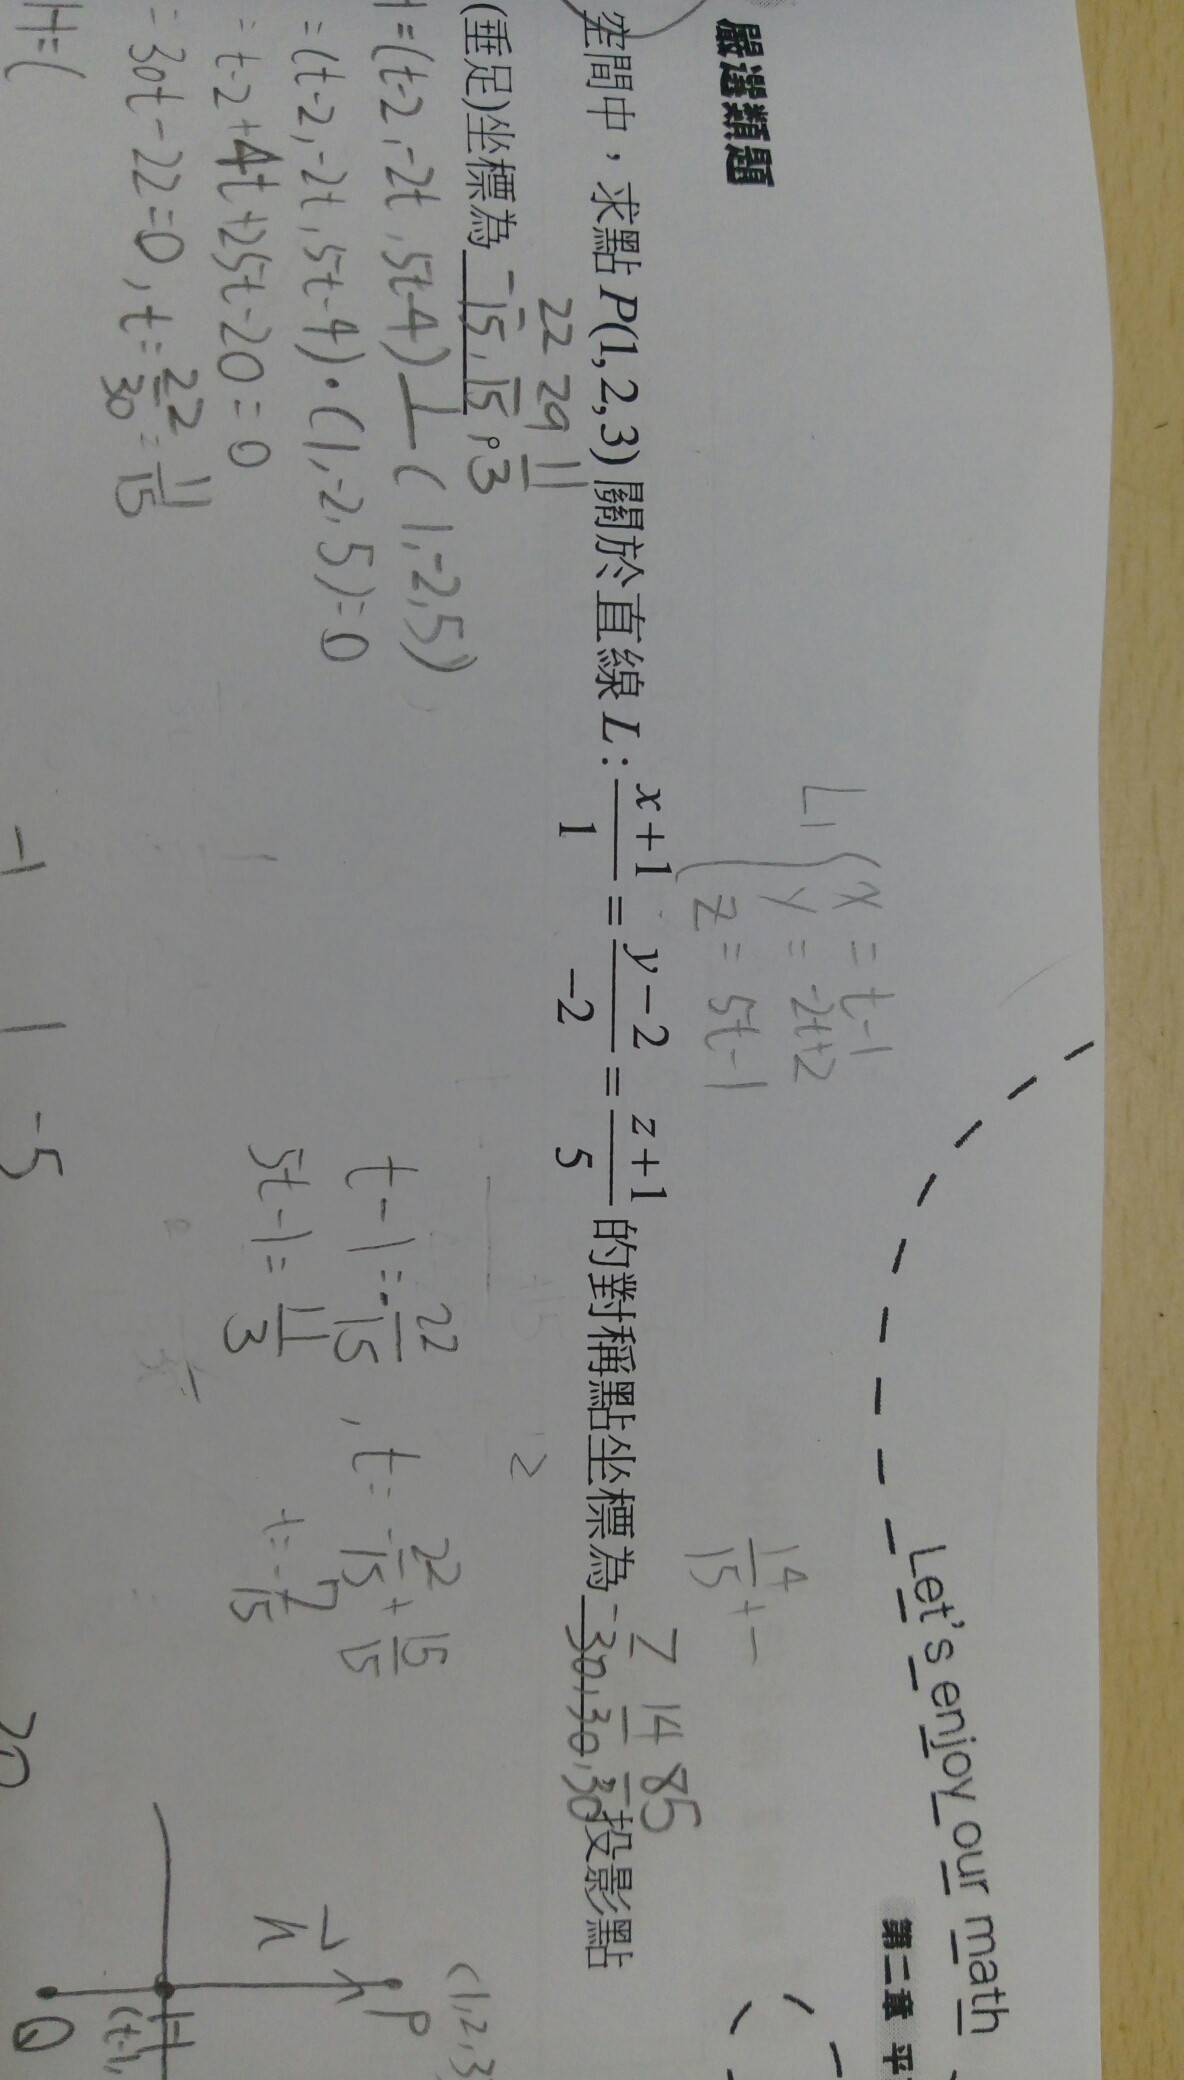 Let's enjoy our math
第二章 平
嚴選類題
L₁ { x = t-1
y = -2t+2
z = 5t-1
14/15 + 1
空間中，求點 P(1, 2, 3) 關於直線 L : (x+1)/1 = (y-2)/-2 = (z+1)/5 的對稱點坐標為 -7/30, 14/30, 85/30 投影點
(垂足)坐標為 -22/15, 29/15, 11/3。
=(t-2, -2t, 5t-4) ⊥ (1, -2, 5)
=(t-2, -2t, 5t-4)·(1, -2, 5)=0
= t-2+4t+25t-20=0
= 30t-22=0, t= 22/30 = 11/15
H=(
t-1=-22/15, t=-22/15+15/15
5t-1=11/3 t=-7/15
2
(1,2,3
P
n
H
(t-1,
Q
-1 1 -5